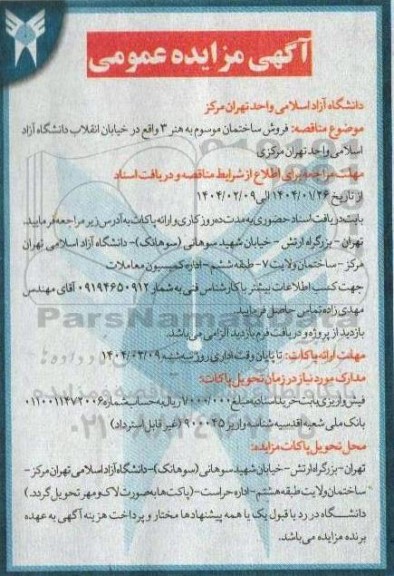 آگهی مزایده عمومی
دانشگاه آزاد اسلامی واحد تهران مرکز
موضوع مناقصه: فروش ساختمان موسوم به هنر ۳ واقع در خیابان انقلاب دانشگاه آزاد
اسلامی واحد تهران مرکزی
مهلت مراجعه برای اطلاع از شرایط مناقصه و دریافت اسناد
از تاریخ ۱۴۰۴/۰۱/۲۶ الی ۱۴۰۴/۰۲/۰۹
بابت دریافت اسناد حضوری به مدت ده روز کاری و ارائه پاکات به آدرس زیر مراجعه فرمایید.
تهران - بزرگراه ارتش - خیابان شهید سوهانی (سوهانک) - دانشگاه آزاد اسلامی تهران
مرکز - ساختمان ولایت ۷ - طبقه ششم - اداره کمیسیون معاملات
جهت کسب اطلاعات بیشتر با کارشناس فنی به شمار ۰۹۱۹۴۶۵۰۹۱۲ آقای مهندس
مهدی زاده تماس حاصل فرمایید.
بازدید از پروژه و دریافت فرم بازدید الزامی می‌باشد.
مهلت ارائه پاکات: تا پایان وقت اداری روز سه شنبه ۱۴۰۴/۰۲/۰۹
مدارک مورد نیاز در زمان تحویل پاکات:
فیش واریزی بابت خرید اسناد به مبلغ ۷/۰۰۰/۰۰۰ ریال به حساب شماره ۰۱۱۰۰۱۱۴۷۲۰۰۶
بانک ملی شعبه اقدسیه شناسه واریز ۹۰۰۰۲۵ (غیر قابل استرداد)
محل تحویل پاکات مزایده:
تهران - بزرگراه ارتش - خیابان شهید سوهانی (سوهانک) - دانشگاه آزاد اسلامی تهران مرکز -
ساختمان ولایت طبقه هشتم - اداره حراست - (پاکت‌ها به صورت لاک و مهر تحویل گردد.)
دانشگاه در رد یا قبول یک یا همه پیشنهادها مختار و پرداخت هزینه آگهی به عهده
برنده مزایده می‌باشد.